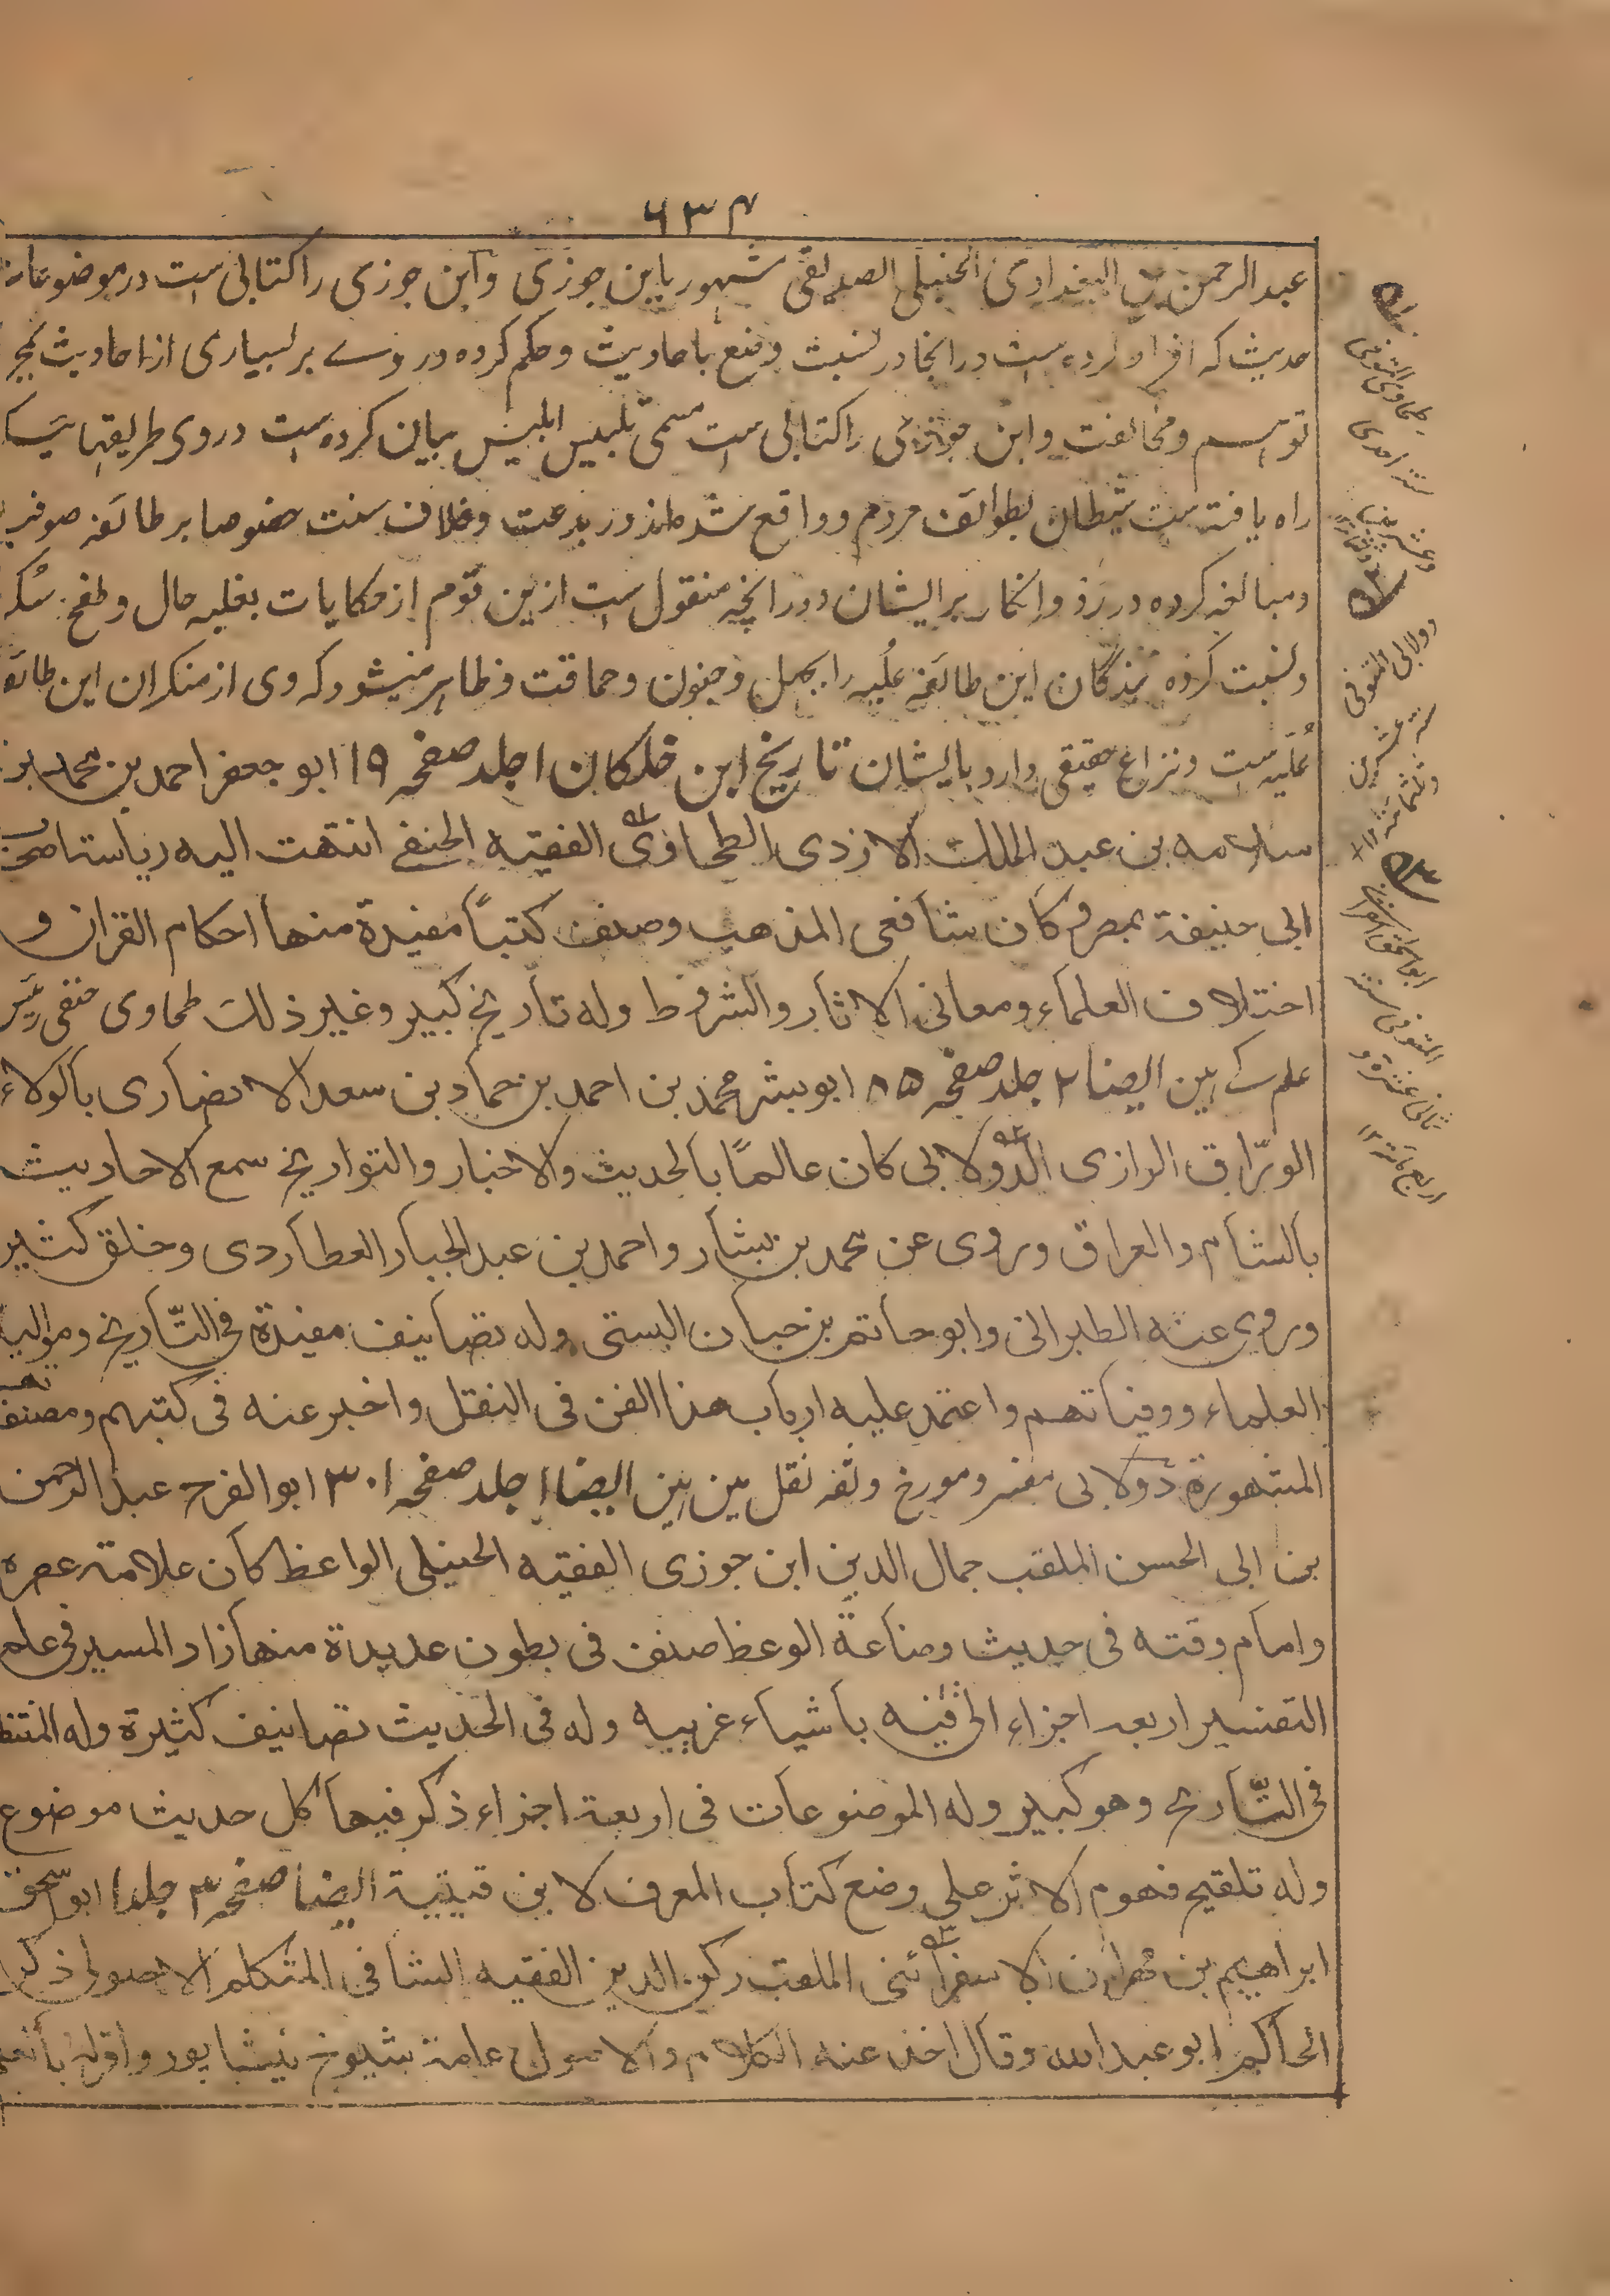 ۶۳۴
عبدالرحمن البغدادی الحنبلی الصدیقی مشهور بابن جوزی وابن جوزی را کتابی است در موضوعات
حدیث که افراط کرده است در انجا در نسبت وضع باحادیث وحکم کرده در وے بر بسیاری از احادیث بمجرد
توہم ومخالفت وابن جوزی را کتابی است مسمی تلبیس ابلیس بیان کرده است در وی طریقہائیکہ
راه یافته است شیطان بطوائف مردم وواقع شده اند در بدعت وخلاف سنت خصوصا بر طائفہ صوفیہ
ومبالغہ کرده در رد وانکار بر ایشان ودر انچہ منقول است ازین قوم از حکایات بغلبہ حال وطفح سکر
ونسبت کرده بزرگان این طائفہ علیہ را بجہل وجنون وحماقت وظاہر میشود کہ وی از منکران این طائفہ
علیہ است ونزاع حقیقی دارد بایشان تاریخ ابن خلکان ۱ جلد صفحہ ۱۹ ابو جعفر احمد بن محمد بن
سلامه بن عبد الملك الازدی الطحاوی الفقیه الحنفے انتهت الیه ریاستاصحاب
ابی حنیفة بمصر وکان شافعی المذهب وصنف کتباً مفیدة منها احکام القران و
اختلاف العلماء ومعانی الاثار والشروط وله تاریخ کبیر وغیر ذلك طحاوی حنفی
علم ایضا ۲ جلد صفحہ ۸۵ ابو بشر محمد بن احمد بن حماد بن سعد الانصاری بالولاء
الورّاق الرازی الدولابی کان عالمًا بالحدیث والاخبار والتواریخ سمع الاحادیث
بالشام والعراق وروی عن محمد بن بشار واحمد بن عبد الجبار العطاردی وخلق کثیر
وروی عنه الطبرانی وابو حاتم بن حبان البستی وله تصانیف مفیدة فی التّاریخ وموالید
العلماء ووفیاتهم واعتمد علیه ارباب هذا الفن فی النقل واخبر عنه فی کتبهم ومصنفاتهم
المشهورة دولابی مفسر ومورخ وثقہ نقل مین ہین ایضا ۱ جلد صفحہ ۳۰۱ ابو الفرج عبد الرحمن
بن ابی الحسن الملقب جمال الدین ابن جوزی الفقیه الحنبلی الواعظ کان علامة عصره
وامام وقته فی حدیث وصناعة الوعظ صنف فی بطون عدیدة منها زاد المسیر فی علم
التفسیر اربعه اجزاء اتی فیه باشیاء غریبه وله فی الحدیث تصانیف کثیرة وله المنتظم
فی التّاریخ وهو کبیر وله الموضوعات فی اربعة اجزاء ذکر فیها کل حدیث موضوع
وله تلقیح فهوم الاثر علی وضع کتاب المعرف لابن قتیبة ایضا صفحہ ۳ جلد ۱ ابو اسحق
ابراهیم بن مهران الاسفرائنی الملقب رکن الدین الفقیه الشافی المتکلم الاصولی ذکره
الحاکم ابو عبد الله وقال اخذ عنه الکلام والاصول عامة شیوخ نیشاپور واقر له بالعلم
طحاوی المتوفی
سنہ احدی
وعشرین
دولابی المتوفی
سنہ عشرین
وثلثمائة
ابو اسحق اسفرائنی
المتوفی سنہ
ثمانی عشرة و
اربع مائة